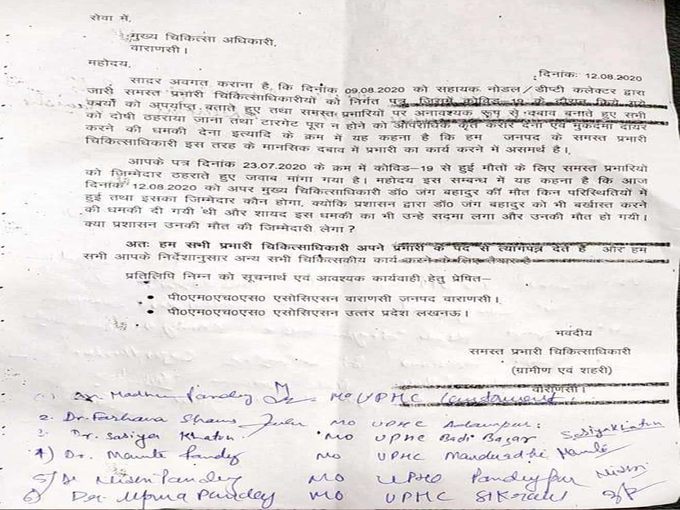 सेवा में,
मुख्य चिकित्सा अधिकारी,
वाराणसी।
महोदय,
दिनांकः 12.08.2020
सादर अवगत कराना है, कि दिनॉक 09.08.2020 को सहायक नोडल/डीप्टी कलेक्टर द्वारा
जारी समस्त प्रभारी चिकित्साधिकारीयों को निर्गत पत्र, जिसमें कोविड-19 के दौरान किये गये
कार्यो को अपर्याप्त बताते हुए तथा समस्त प्रभारियों पर अनावश्यक रूप से दबाव बनाते हुए सभी
को दोषी ठहराया जाना तथा टारगेट पूरा न होने को आपराधिक कृत करार देना एवं मुकदमा दायर
करने की धमकी देना इत्यादि के क्रम में यह कहना है कि हम जनपद के समस्त प्रभारी
चिकित्साधिकारी इस तरह के मानसिक दबाव में प्रभारी का कार्य करने में असमर्थ है।
आपके पत्र दिनांक 23.07.2020 के क्रम में कोविड-19 से हुई मौतों के लिए समस्त प्रभारियों
को जिम्मेदार ठहराते हुए जवाब मांगा गया है। महोदय इस सम्बन्ध में यह कहना है कि आज
दिनांक 12.08.2020 को अपर मुख्य चिकित्साधिकारी डॉ0 जंग बहादुर की मौत किन परिस्थितियों में
हुई तथा इसका जिम्मेदार कौन होगा, क्योंकि प्रशासन द्वारा डॉ0 जंग बहादुर को भी बर्खास्त करने
की धमकी दी गयी थी और शायद इस धमकी का भी उन्हे सदमा लगा और उनकी मौत हो गयी।
क्या प्रशासन उनकी मौत की जिम्मेदारी लेगा ?
अतः हम सभी प्रभारी चिकित्साधिकारी अपने प्रभारी के पद से त्यागपत्र देते है और हम
सभी आपके निर्देशानुसार अन्य सभी चिकित्सकीय कार्य करने के लिए तैयार है
प्रतिलिपि निम्न को सूचनार्थ एवं आवश्यक कार्यवाही हेतु प्रेषित–
• पी0एम0एच0एस0 एसोसिएसन वाराणसी जनपद वाराणसी।
• पी0एम0एच0एस0 एसोसिएसन उत्तर प्रदेश लखनऊ।
भवदीय
समस्त प्रभारी चिकित्साधिकारी
(ग्रामीण एवं शहरी)
वाराणसी।
Dr. Madhu Pandey MO UPHC
2. Dr. Farhana Shams MO UPHC
3 Dr. Sariya Khaton MO UPHC Badi Bazar Sariya Khaton
4) Dr. Mamta Pandey MO UPHC Manduadih Mamta
5) Dr Nisen Pandey MO UPHC Pandeypur Nisen
6) Dr. Upma Pandey MO UPHC Sikraul